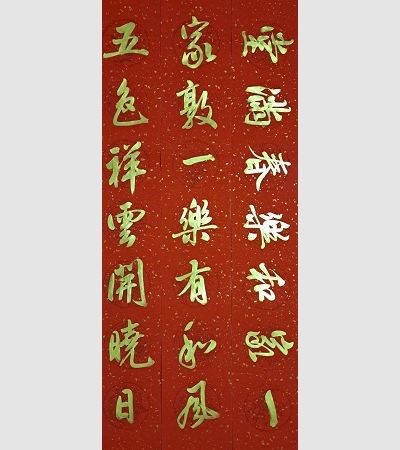 一家和樂春滿堂
家敦一樂有和風
五色祥雲開曉日